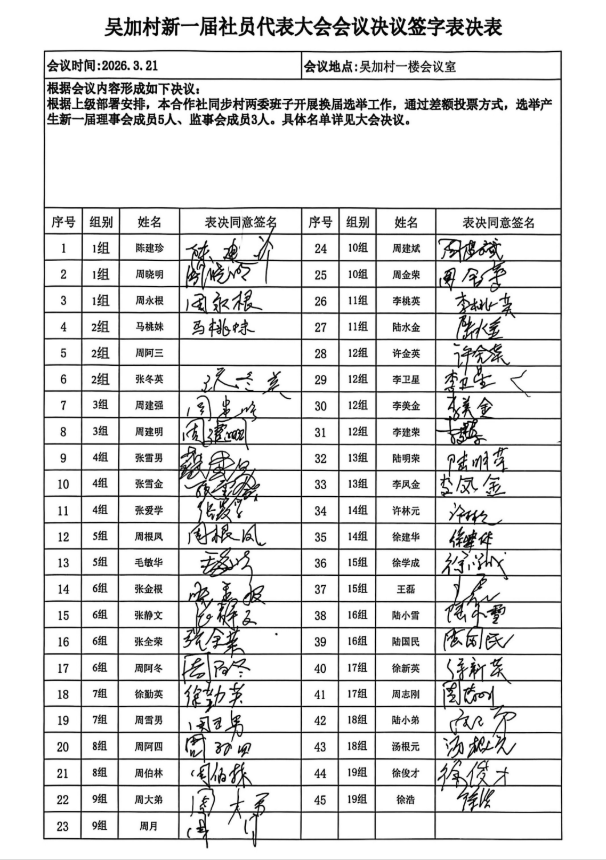 吴加村新一届社员代表大会会议决议签字表决表
会议时间:2026.3.21 会议地点:吴加村一楼会议室
根据会议内容形成如下决议:
根据上级部署安排，本合作社同步村两委班子开展换届选举工作，通过差额投票方式，选举产
生新一届理事会成员5人、监事会成员3人。具体名单详见大会决议。
序号 组别 姓名 表决同意签名 序号 组别 姓名 表决同意签名
1 1组 陈建珍 24 10组 周建斌 周建斌
2 1组 周晓明 周晓明 25 10组 周金荣 周金荣
3 1组 周永根 周永根 26 11组 李桃英 李桃英
4 2组 马桃妹 马桃妹 27 11组 陆水金 陆水金
5 2组 周阿三 28 12组 许金英
6 2组 张冬英 张冬英 29 12组 李卫星 李卫星
7 3组 周建强 30 12组 李美金 李美金
8 3组 周建明 周建明 31 12组 李建荣
9 4组 张雪男 32 13组 陆明荣 陆明荣
10 4组 张雪金 33 13组 李凤金 李凤金
11 4组 张爱学 34 14组 许林元
12 5组 周根凤 周根凤 35 14组 徐建华 徐建华
13 5组 毛敏华 36 15组 徐学成 徐学成
14 6组 张金根 37 15组 王磊
15 6组 张静文 38 16组 陆小雪 陆小雪
16 6组 张全荣 张全荣 39 16组 陆国民 陆国民
17 6组 周阿冬 周阿冬 40 17组 徐新英 徐新英
18 7组 徐勤英 徐勤英 41 17组 周志刚 周志刚
19 7组 周雪男 42 18组 陆小弟
20 8组 周阿四 周阿四 43 18组 汤根元 汤根元
21 8组 周伯林 周伯林 44 19组 徐俊才 徐俊才
22 9组 周大弟 周大弟 45 19组 徐浩 徐浩
23 9组 周月 周月